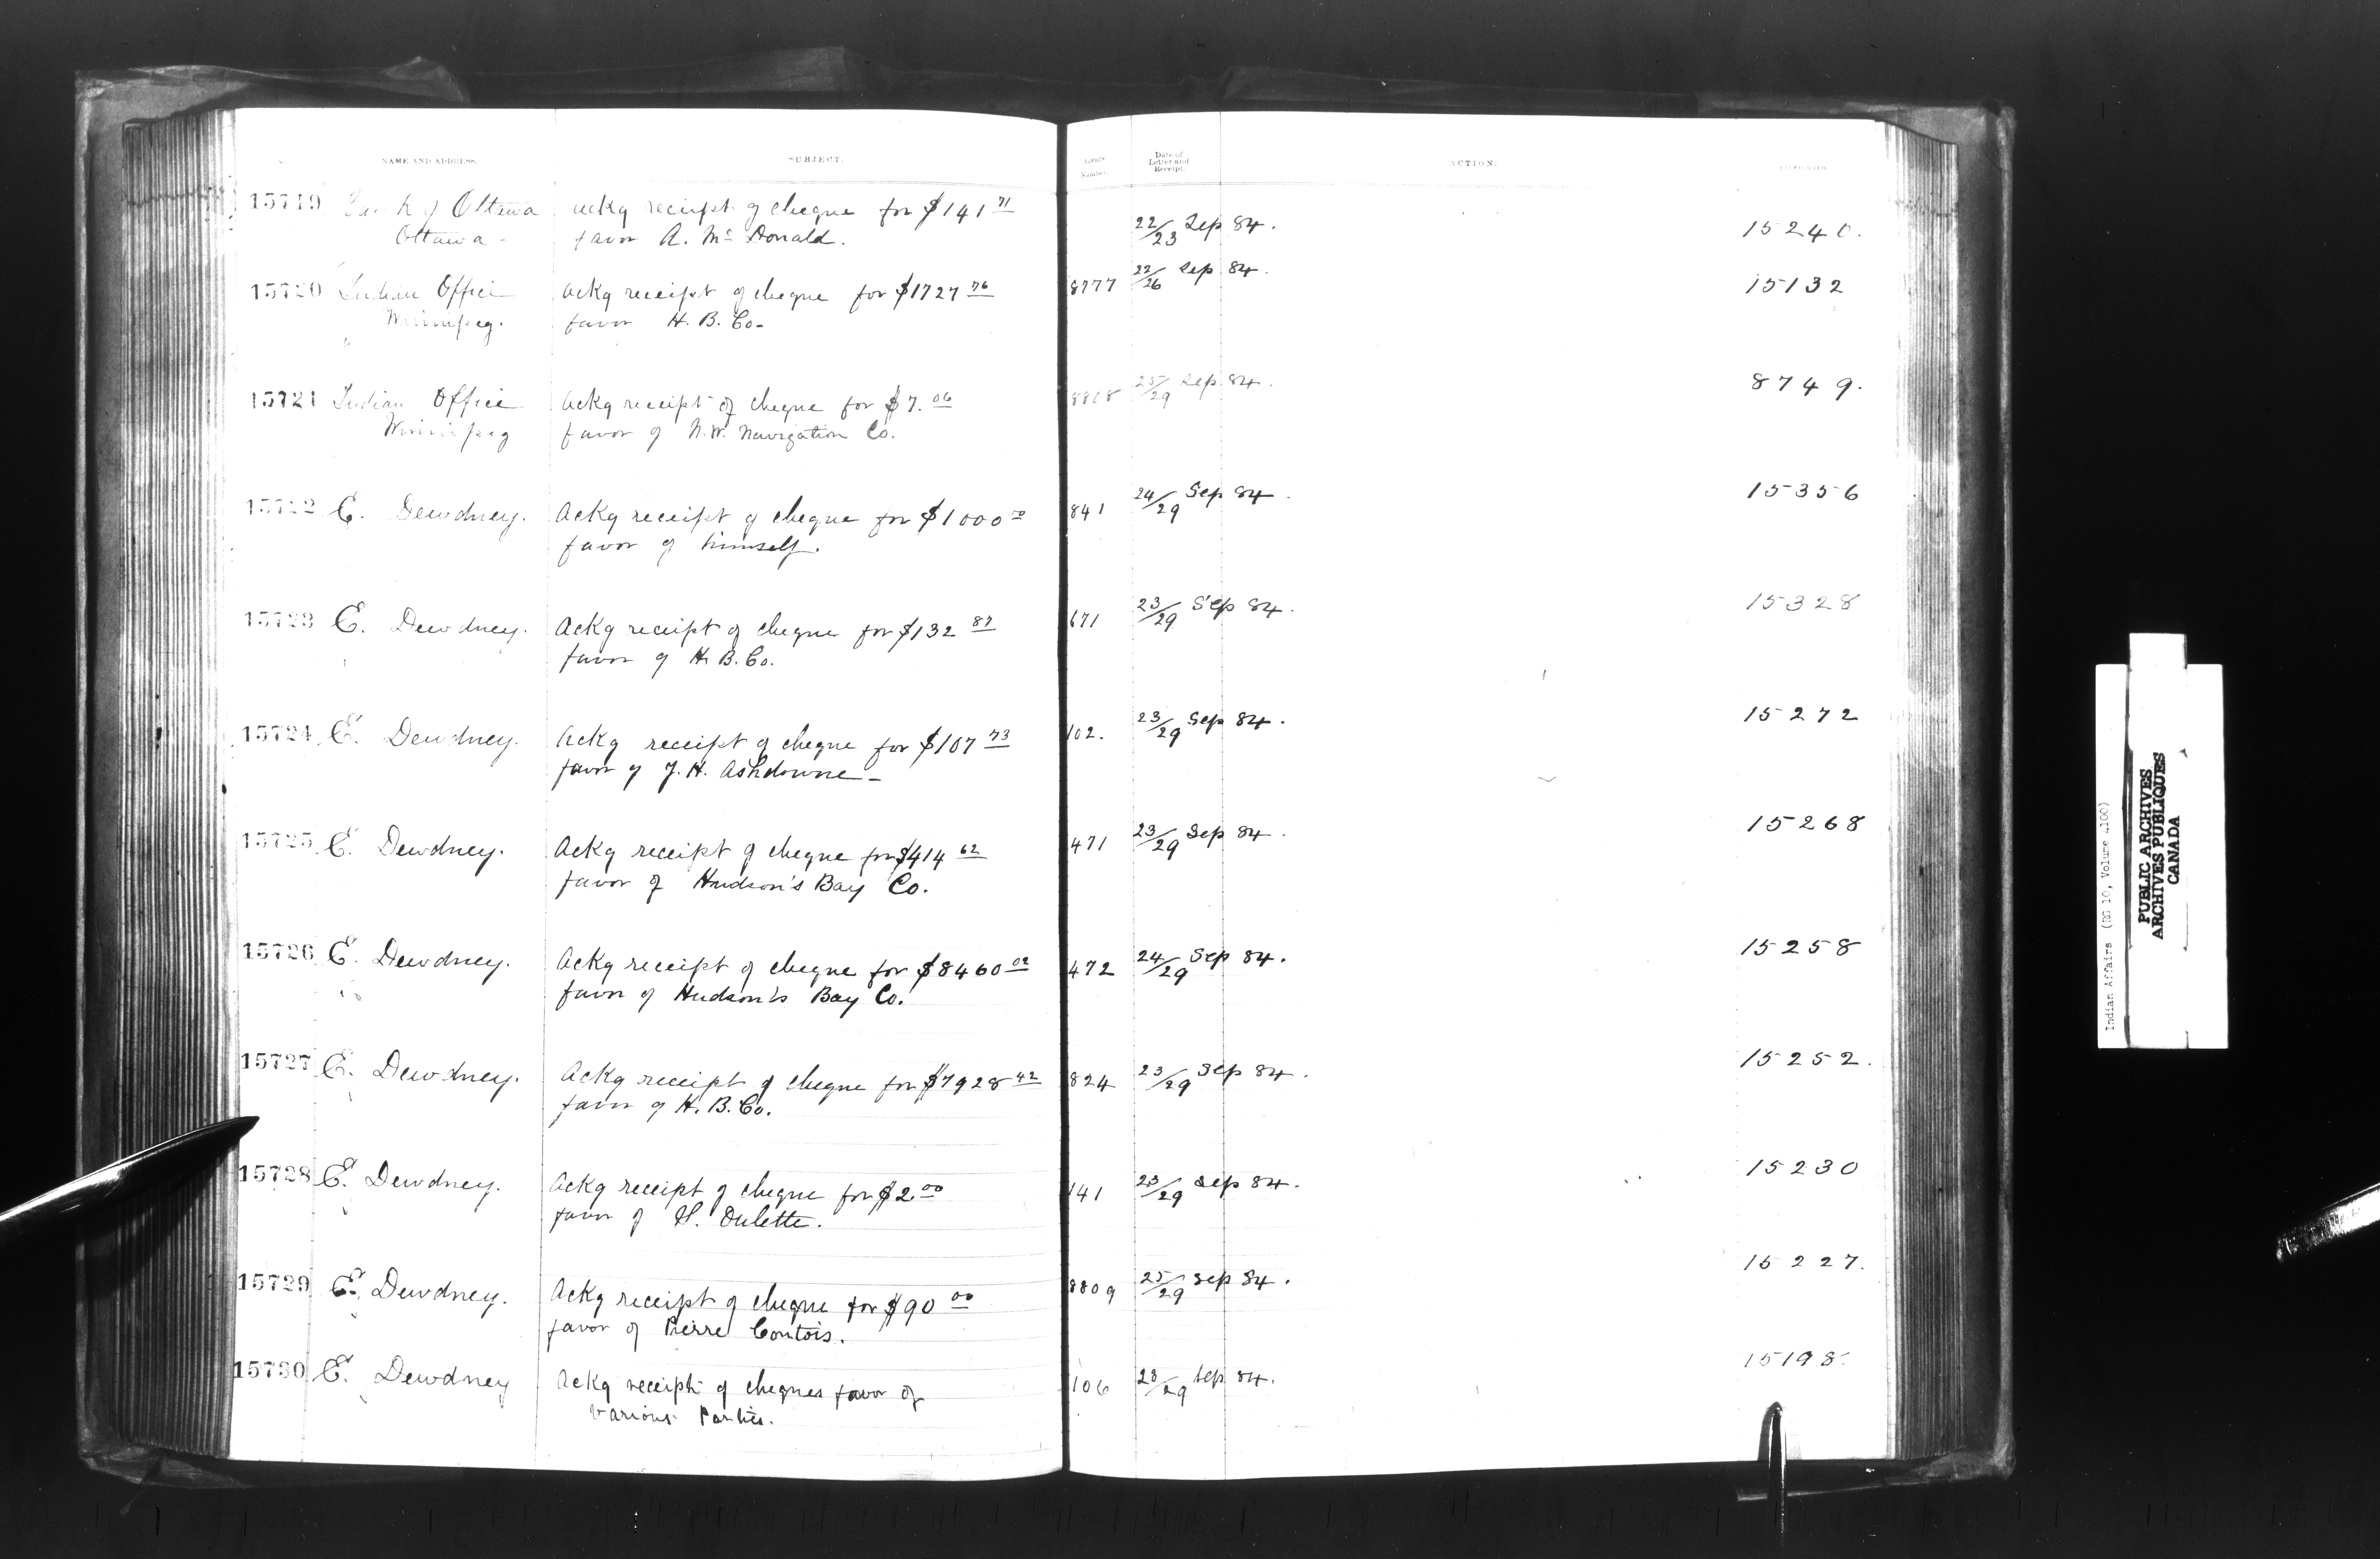 NAME AND ADDRESS. SUBJECT. Agents Number. Date of Letter and Receipt. ACTION.
15719 Bank of Ottawa Ackg receipt of cheque for $141 71 22/23 Sep 84. 15240.
Ottawa - favor A. Mc Donald.
15720 Indian Office Ackg receipt of cheque for $1727 76 8777 22/26 Sep 84. 15132
Winnipeg. favor H. B. Co-
15721 Indian Office Ackg receipt of cheque for $7. 06 8808 25/29 Sep 84. 8749.
Winnipeg favor of N.W. Navigation Co.
15722 E. Dewdney. Ackg receipt of cheque for $1000 00 841 24/29 Sep 84. 15356
favor of himself.
15723 E. Dewdney. Ackg receipt of cheque for $132 87 671 23/29 Sep 84. 15328
favor of H. B. Co.
15724 E. Dewdney. Ackg receipt of cheque for $107 73 102. 23/29 Sep 84. 15272
favor of J. H. Ashdowne -
15725 E. Dewdney. Ackg receipt of cheque for $414 62 471 23/29 Sep 84. 15268
favor of Hudson's Bay Co.
15726 E. Dewdney. Ackg receipt of cheque for $8460 02 472 24/29 Sep 84. 15258
favor of Hudson's Bay Co.
15727 E. Dewdney. Ackg receipt of cheque for $7928 42 824 23/29 Sep 84. 15252.
favor of H. B. Co.
15728 E. Dewdney. Ackg receipt of cheque for $2 00 141 23/29 Sep 84. 15230
favor of H. Dulette.
15729 E. Dewdney. Ackg receipt of cheque for $90 00 8809 25/29 Sep 84. 15227.
favor of Pierre Contois.
15730 E. Dewdney Ackg receipt of cheques favor of 106 23/29 Sep 84. 15198.
various Parties.
Indian Affairs (RG 10, Volume
PUBLIC ARCHIVES
ARCHIVES PUBLIQUES
CANADA